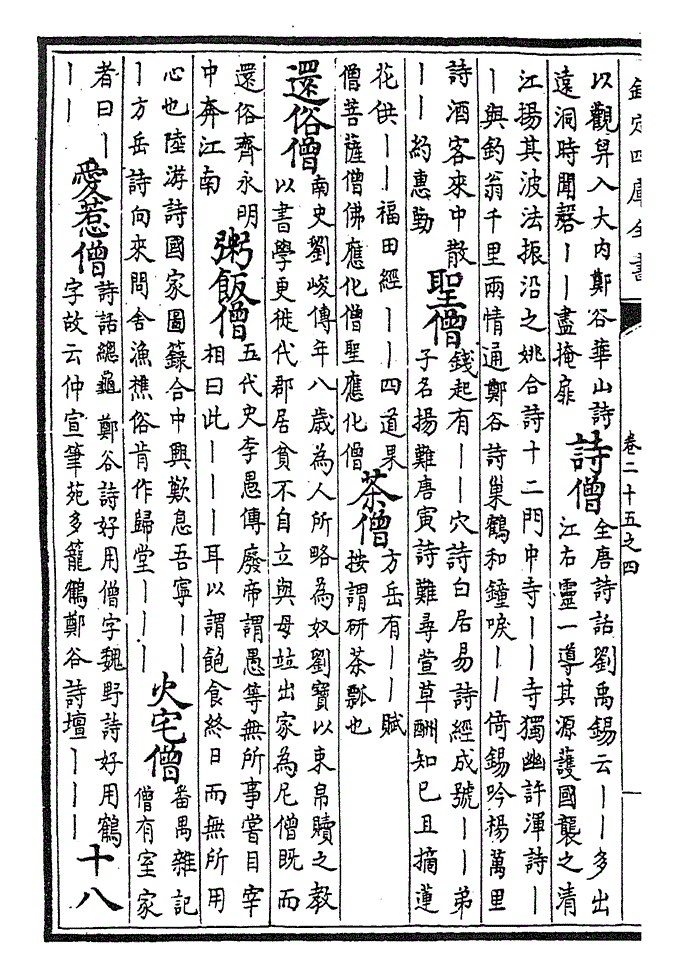 欽定四庫全書
卷二十五之四
以觀昇入大内鄭谷華山詩
遠洞時聞磬丨丨盡掩扉
詩僧
全唐詩話劉禹錫云丨丨多出
江右靈一導其源護國襲之清
江揚其波法振沿之姚合詩十二門中寺丨丨寺獨幽許渾詩丨
丨與釣翁千里兩情通鄭谷詩巢鶴和鐘唳丨丨倚錫吟楊萬里
詩酒客來中散
丨丨約惠勤
聖僧
錢起有丨丨穴詩白居易詩經成號丨丨弟
子名揚難唐寅詩難尋萱草酬知已且摘蓮
花供丨丨福田經丨丨四道果
僧菩薩僧佛應化僧聖應化僧
茶僧
方岳有丨丨賦
按謂研茶瓢也
還俗僧
南史劉峻傳年八歲為人所略為奴劉寶以束帛贖之教
以書學更徙代郡居貧不自立與母竝出家為尼僧既而
還俗齊永明
中奔江南
粥飯僧
五代史李愚傳廢帝謂愚等無所事嘗目宰
相曰此丨丨丨耳以謂飽食終日而無所用
心也陸游詩國家圖籙合中興歎息吾寧丨丨
丨方岳詩向來問舍漁樵俗肯作歸堂丨丨丨
火宅僧
番禺雜記
僧有室家
者曰丨
丨丨
愛惹僧
詩話總龜鄭谷詩好用僧字魏野詩好用鶴
字故云仲宣筆苑多籠鶴鄭谷詩壇丨丨丨
十八